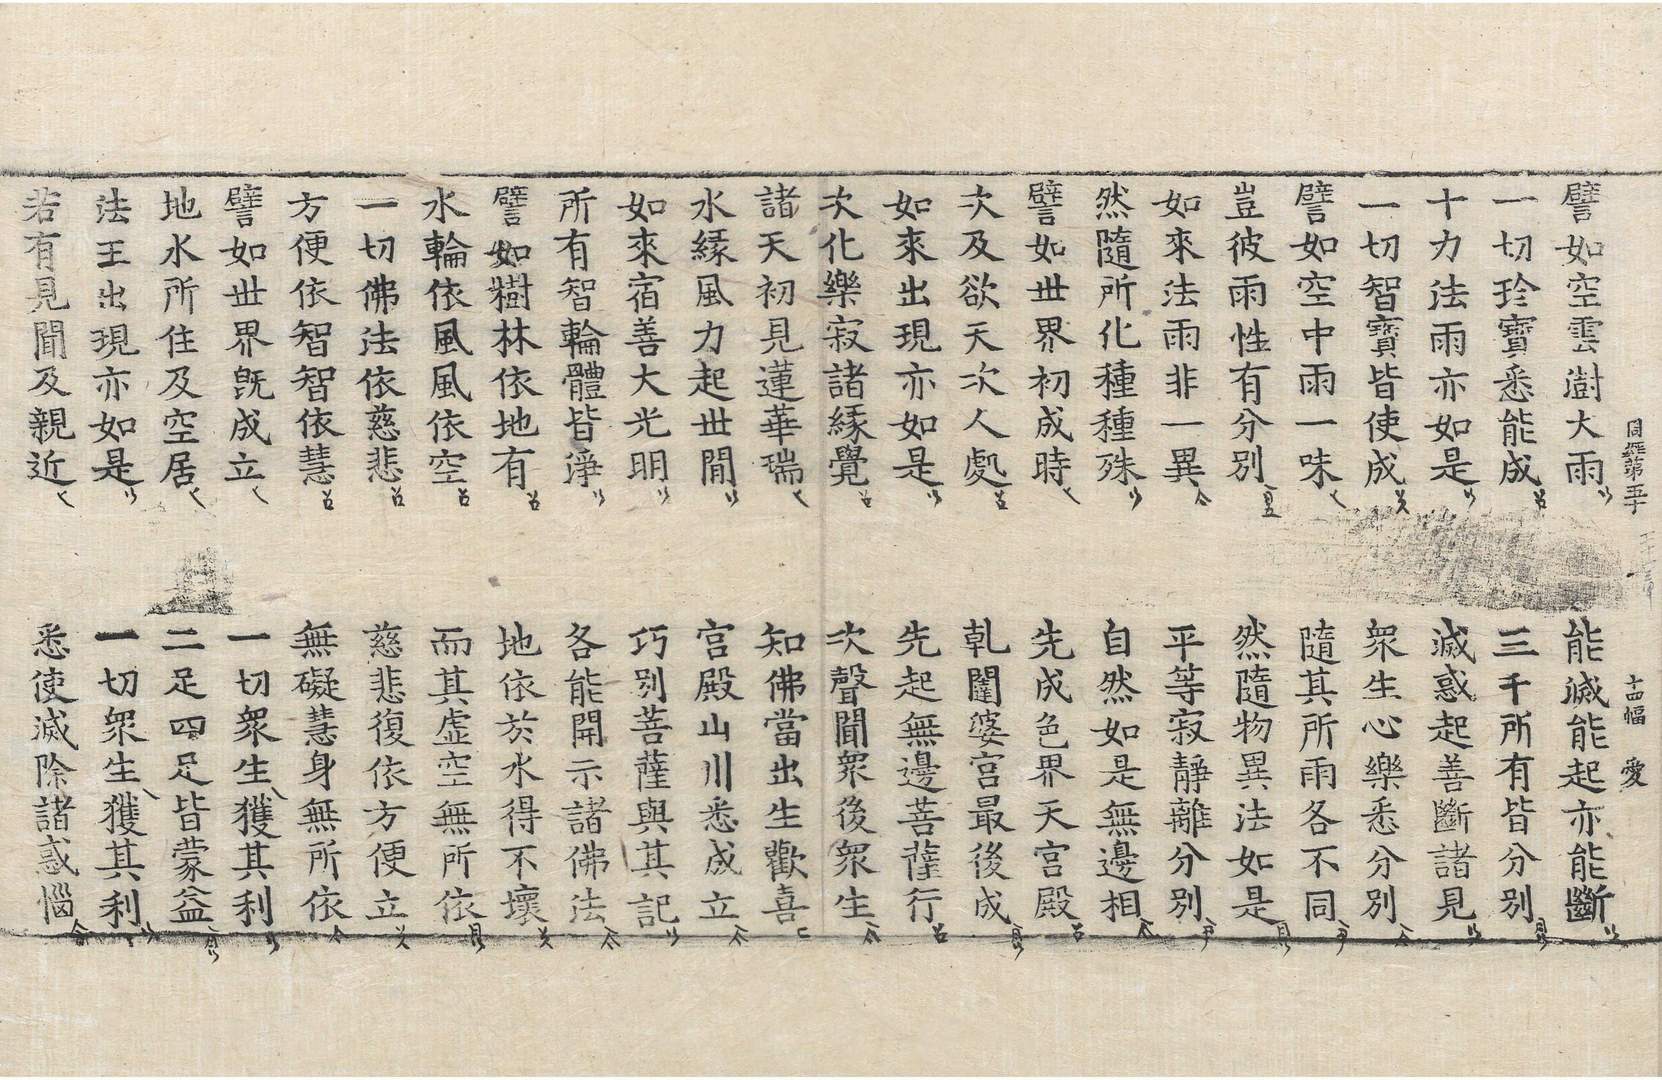 周經第五十
十四幅 愛
譬如空雲澍大雨 能滅能起亦能斷
一切珍寶悉能成 三千所有皆分別
十力法雨亦如是 滅惑起善斷諸見
一切智寶皆使成 衆生心樂悉分別
譬如空中雨一味 隨其所雨各不同
豈彼雨性有分別 然隨物異法如是
如來法雨非一異 平等寂靜離分別
然隨所化種種殊 自然如是無邊相
譬如世界初成時 先成色界天宮殿
次及欲天次人處 乹闥婆宮最後成
如來出現亦如是 先起無邊菩薩行
次化樂寂諸緣覺 次聲聞衆後衆生
諸天初見蓮華瑞 知佛當出生歡喜
水緣風力起世閒 宮殿山川悉成立
如來宿善大光明 巧別菩薩與其記
所有智輪體皆淨 各能開示諸佛法
譬如樹林依地有 地依於水得不壞
水輪依風風依空 而其虛空無所依
一切佛法依慈悲 慈悲復依方便立
方便依智智依慧 無礙慧身無所依
譬如世界旣成立 一切衆生獲其利
地水所住及空居 二足四足皆蒙益
法王出現亦如是 一切衆生獲其利
若有見聞及親近 悉使滅除諸惑惱